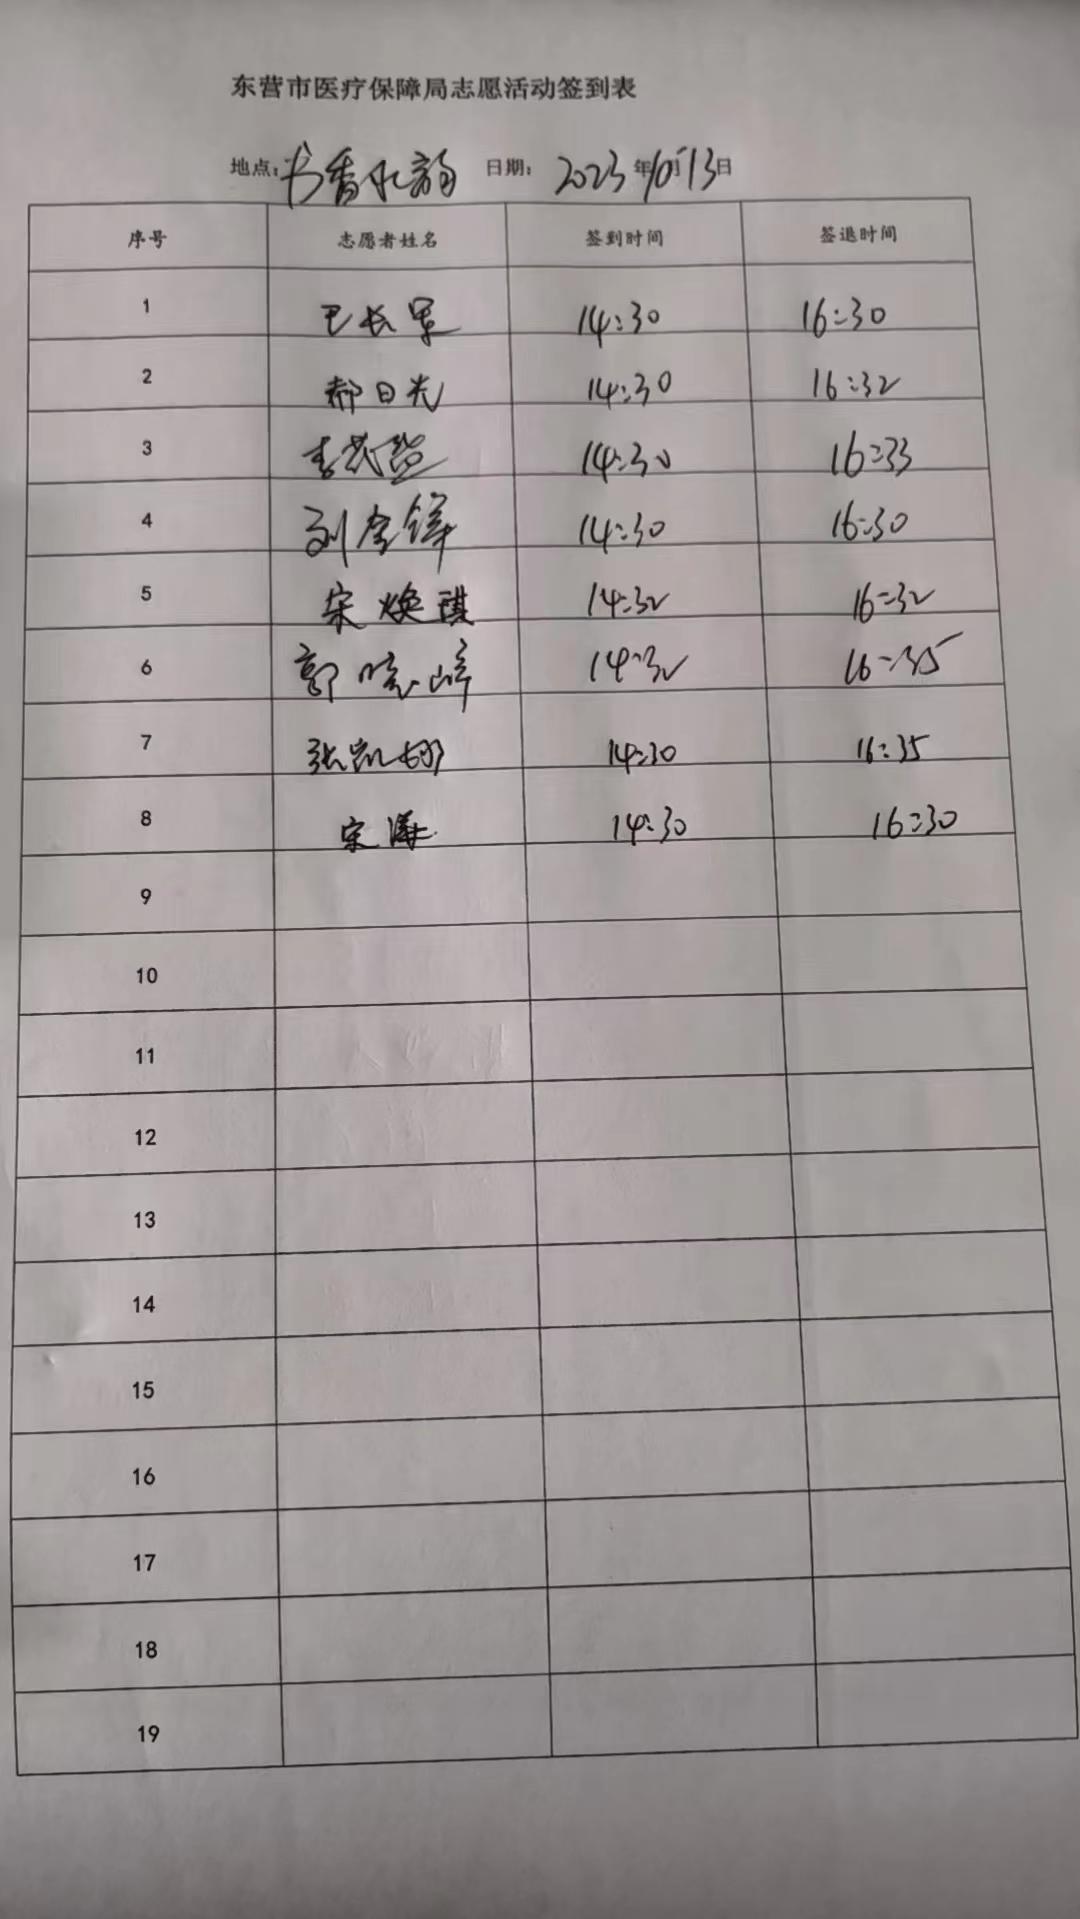 东营市医疗保障局志愿活动签到表
地点:书香水韵 日期: 2023年10月13日
序号 志愿者姓名 签到时间 签退时间
1 王长军 14:30 16:30
2 郝日光 14:30 16:32
3 李 14:30 16:33
4 刘金锋 14:30 16:30
5 宋焕琪 14:32 16:32
6 郭晓峰 14:32 16:35
7 张凯娜 14:30 16:35
8 宋 14:30 16:30
9
10
11
12
13
14
15
16
17
18
19